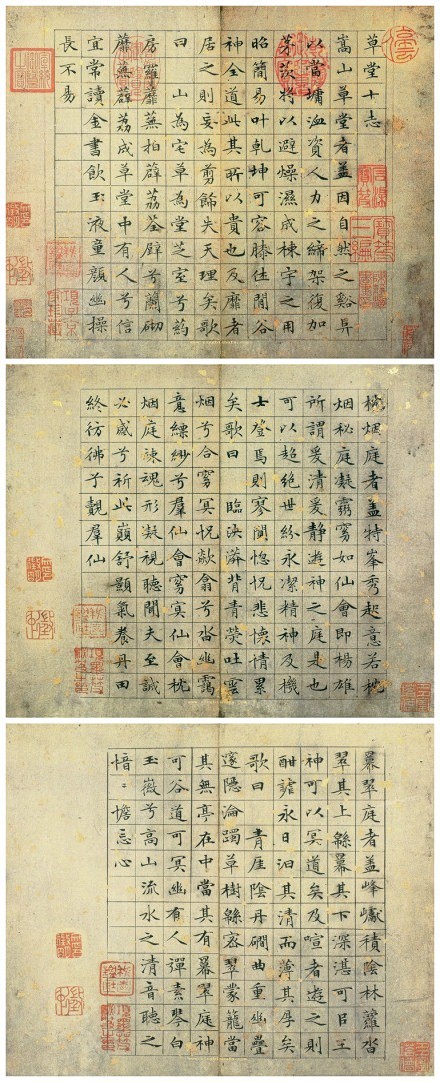 草堂十志
嵩山草堂者盖因自然之谿阜
以當墉洫資人力之締架復加
茅茨將以避燥濕成棟宇之用
昭簡易叶乾坤可容膝休閒谷
神全道此其所以貴也及靡者
居之則妄為剪飾失天理矣歌
曰 山為宅草為堂芝室兮药
房羅蘼蕪拍薜荔荃壁兮蘭砌
蘼蕪薜荔成草堂中有人兮信
宜常讀金書飲玉液童顏幽操
長不易
枕烟庭者盖特峯秀起意若枕
烟秘庭凝靄窅如仙會即楊雄
所謂爰清爰静遊神之庭是也
可以超絕世紛永潔精神及機
士登焉則寥闃惚怳悲懷情累
矣歌曰 臨泱漭背青熒吐雲
烟兮合窅冥怳欻翕兮沓幽靄
意縹緲兮羣仙會窅冥仙會枕
烟庭竦魂形凝視聽聞夫至誠
必感兮祈此巔舒顥氣養丹田
終彷彿兮覯羣仙
羃翠庭者盖峰巘積陰林蘿沓
翠其上緜羃其下深湛可以王
神可以冥道矣及喧者遊之則
酣謔永日汩其清而薄其厚矣
歌曰 青厓陰丹磵曲重幽疊
邃隱淪躅草樹緜密翠蒙籠當
其無亭在中當其有羃翠庭神
可谷道可冥幽有人彈素琴白
玉徽兮高山流水之清音聽之
愔〻憺忘心